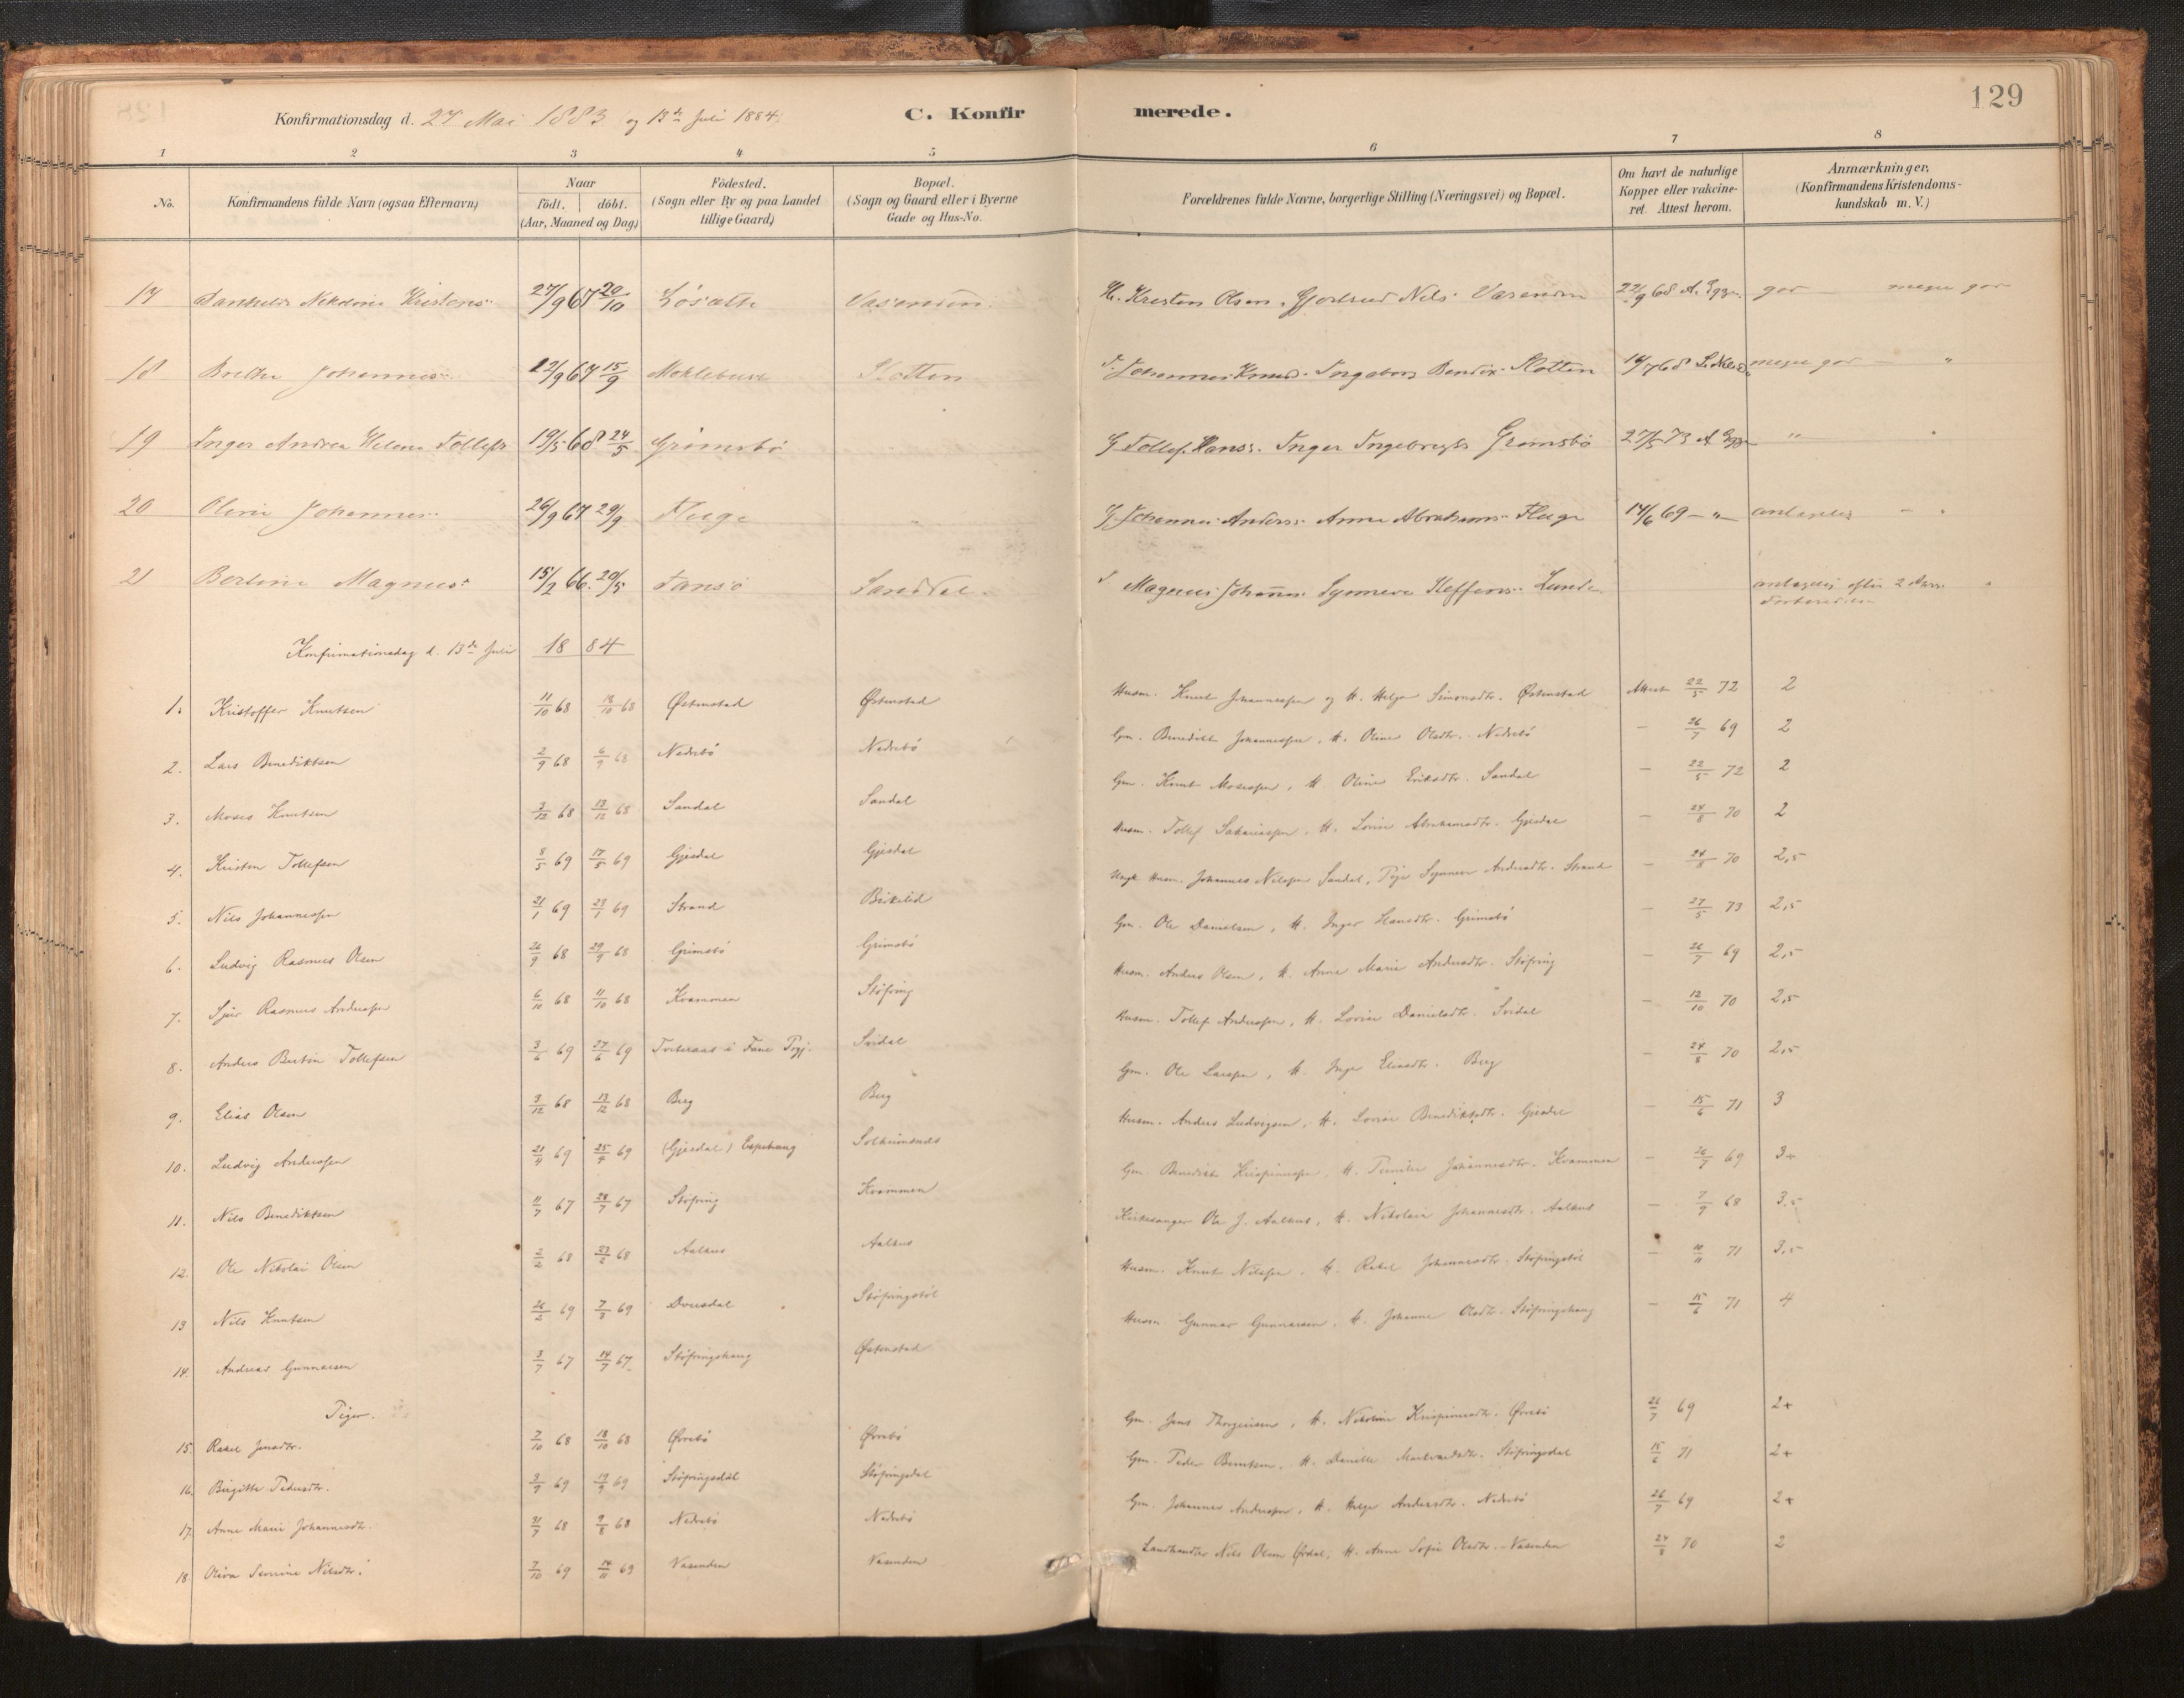 129
Konfirmationsdag d. 27 Mai 1883 og 13de Juli 1884.
C. Konfirmerede.
1 2 3 4 5 6 7 8
No. Konfirmandens fulde Navn (ogsaa Efternavn) Naar födt. döbt. (Aar, Maaned og Dag) Födested. (Sogn eller By og paa Landet tillige Gaard) Bopæl. (Sogn og Gaard eller i Byerne Gade og Hus-No. Forældrenes fulde Navne, borgerlige Stilling (Næringsvei) og Bopæl. Om havt de naturlige Kopper eller vakcineret. Attest herom. Anmærkninger, (Konfirmandens Kristendomskundskab m. V.)
17 27/9 67 20/10 Vasenden. Kristen Olsen Nils Vasenden 22/9 68 god meget god
18 Brithe Johannes 12/9 67 15/9 Slotten Johannes Ingeborg Slotten 14/7 68 meget god "
19 Inger Andrea Helene Tollefs 19/5 68 24/5 Grimsbö Tollef Hans: Inger Ingebrigts Grimsbö 27/5 73 " "
20 Oline Johannes 26/9 67 29/9 Fluge " Johannes Anders: Anne Abrahams Fluge 14/6 69 - " - antagelig - "
21 Berline Magnus: 15/2 66. 20/5 Sanddal. Magnus Synneve Steffens: Lunde. antagelig efter 2 "
Konfirmationsdag d. 13de Juli 1884
1. Kristoffer Knutsen 11/10 68 18/10 68 Østenstad Østenstad Husm. Knut Johannessen og H. Helga Simonsdtr. Østenstad Attest 22/5 72 2
2. Lars Benediktsen 2/9 68 6/9 68 Nedrebö Nedrebö Gm. Benedikt Johannessen, H. Oline Olsdtr. Nedrebö — 26/7 69 2
3. Moses Knutsen 3/12 68 13/12 68 Sandal Sandal Gm. Knut Mosessen, H. Oline Eriksdtr. Sandal — 22/5 72 2
4. Kristen Tollefsen 8/5 69 17/5 69 Gjesdal Gjesdal Husm. Tollef Sakariassen, H. Lovise Abrahamsdtr. Gjesdal — 24/8 70 2
5. Nils Johannessen 21/1 69 23/1 69 Strand Birkelid Ungk. Husm. Johannes Nilssen Sandal, Pige Synneve Andersdtr. Strand — 24/8 70 2,5
6. Ludvig Rasmus Olsen 26/9 68 29/9 68 Grimsbö Grimsbö Gm. Ole Danielsen, H. Inger Hansdtr. Grimsbö — 27/5 73 2,5
7. Sjur Rasmus Anderssen 6/10 68 11/10 68 Kvammen Støfring Husm. Anders Olsen, H. Anne Marie Andersdtr. Støfring — 26/7 69 2,5
8. Anders Bertin Tollefsen 3/6 69 27/6 69 Tveteraas i Fane Prgj. Svidal Husm. Tollef Anderssen, H. Lovise Danielsdtr. Svidal — 12/10 70 2,5
9. Elias Olsen 3/12 68 13/12 68 Berg Berg Gm. Ole Larssen, H. Inger Eliasdtr. Berg — 24/8 70 2,5
10. Ludvig Anderssen 21/4 69 25/4 69 (Gjesdal) Espehaug Solheimsnes Husm. Anders Ludvigsen, H. Lovise Benediktsdtr. Gjesdal — 15/6 71 3
11. Nils Benediktsen 11/7 67 28/7 67 Støfring Kvammen Gm. Benedikt Krispinussen, H. Pernille Johannesdtr. Kvammen — 26/7 69 3+
12. Ole Nikolai Olsen 2/2 68 23/2 68 Aalhus Aalhus Kirkesanger Ole J. Aalhus, H. Nikolaia Johannesdtr. Aalhus — 7/9 68 3,5
13 Nils Knutsen 26/2 69 7/3 69 Dvergsdal Støfringstöl Husm. Knut Nilssen, H. Rakel Johannesdtr. Støfringstöl — 10/11 71 3,5
14. Andreas Gunnarsen 3/7 67 14/7 67 Støfringshaug Østenstad Husm. Gunnar Gunnarsen, H. Johanne Olsdtr. Støfringshaug — 15/6 71 4
Piger.
15. Rakel Jensdtr. 7/10 68 18/10 68 Ørrebö Ørrebö Gm. Jens Thorgeirsen, H. Nikoline Krispinusdtr. Ørrebö 26/7 69 2+
16. Birgitte Pedersdtr. 3/9 69 19/9 69 Støfringsdal Støfringsdal Gm. Peder Berntsen, H. Danielle Støfringsdal 15/6 71 2+
17. Anne Marie Johannesdtr. 31/7 68 9/8 68 Nedrebö Nedrebö Gm. Johannes Anderssen, H. Helga Andersdtr. Nedrebö 26/7 69 2+
18. Oliva Severine Nilsdtr. 7/10 69 14/11 69 Vasenden Vasenden Landhandler Nils Olsen Årdal, H. Anne Sofie Olsdtr. Vasenden 24/8 70 2